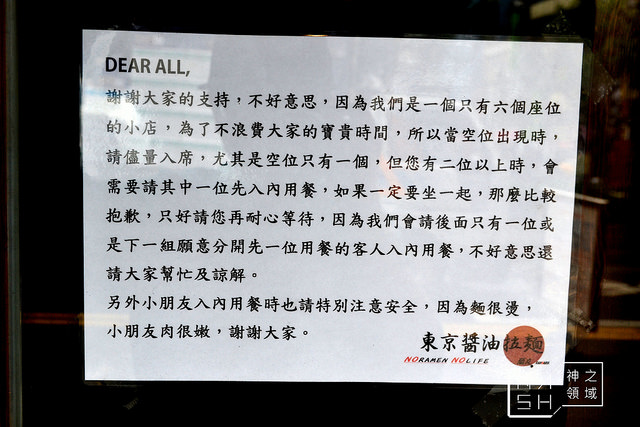 DEAR ALL,
謝謝大家的支持，不好意思，因為我們是一個只有六個座位
的小店，為了不浪費大家的寶貴時間，所以當空位出現時，
請儘量入席，尤其是空位只有一個，但您有二位以上時，會
需要請其中一位先入內用餐，如果一定要坐一起，那麼比較
抱歉，只好請您再耐心等待，因為我們會請後面只有一位或
是下一組願意分開先一位用餐的客人入內用餐，不好意思還
請大家幫忙及諒解。
另外小朋友入內用餐時也請特別注意安全，因為麵很燙，
小朋友肉很嫩，謝謝大家。
東京醬油拉麵
NORAMEN NOLIFE
SH
神之
領域